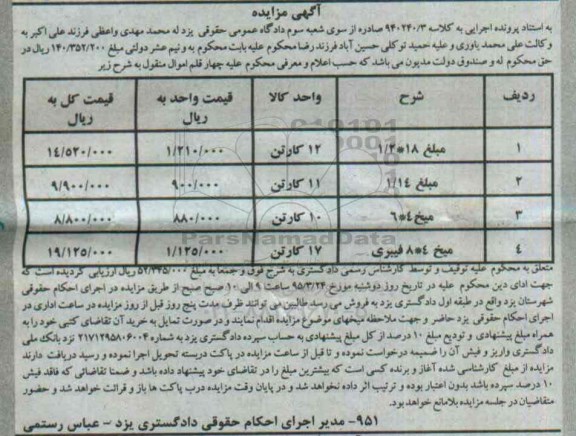 آگهی مزایده
به استناد پرونده اجرایی به کلاسه ۹۴۰۲۴۰/۳ صادره از سوی شعبه سوم دادگاه عمومی حقوقی یزد له محمد مهدی واعظی فرزند علی اکبر به
وکالت علی محمد یاوری و علیه حمید توکلی حسین آباد فرزند رضا محکوم علیه بابت محکوم به و نیم عشر دولتی مبلغ ۱۴۰/۳۵۲/۲۰۰ ریال در
حق محکوم له و صندوق دولت مدیون می باشد که حسب اعلام و معرفی محکوم علیه چهار قلم اموال منقول به شرح زیر
ردیف شرح واحد کالا قیمت واحد به ریال قیمت کل به ریال
۱ مبلغ ۱۸*۱/۲ ۱۲ کارتن ۱/۲۱۰/۰۰۰ ۱۴/۵۲۰/۰۰۰
۲ مبلغ ۱/۱۴ ۱۱ کارتن ۹۰۰/۰۰۰ ۹/۹۰۰/۰۰۰
۳ میخ ۴*۶ ۱۰ کارتن ۸۸۰/۰۰۰ ۸/۸۰۰/۰۰۰
۴ میخ ۴*۸ فیبری ۱۷ کارتن ۱/۱۲۵/۰۰۰ ۱۹/۱۲۵/۰۰۰
ParsNamadData
متعلق به محکوم علیه توقیف و توسط کارشناس رسمی دادگستری به شرح فوق و جمعا به مبلغ ۵۲/۳۴۵/۰۰۰ ریال ارزیابی گردیده است که
جهت ادای دین محکوم علیه در تاریخ روز دوشنبه مورخ ۹۵/۳/۲۴ ساعت ۹ الی ۱۰ صبح صبح از طریق مزایده در اجرای احکام حقوقی
شهرستان یزد واقع در طبقه اول دادگستری یزد به فروش می رسد طالبین می توانند ظرف مدت پنج روز قبل از روز مزایده در ساعت اداری در
اجرای احکام حقوقی یزد حاضر و جهت ملاحظه میخهای موضوع مزایده اقدام نمایند و در صورت تمایل به خرید آن تقاضای کتبی خود را به
همراه مبلغ پیشنهادی و تودیع مبلغ ۱۰ درصد از کل مبلغ پیشنهادی به حساب سپرده دادگستری یزد به شماره ۲۱۷۱۲۹۵۸۰۶۰۰۴ نزد بانک ملی
دادگستری واریز و فیش آن را ضمیمه درخواست نموده و تا قبل از ساعت مزایده در پاکت دربسته تحویل اجرا نموده و رسید دریافت دارند
مزایده از مبلغ کارشناسی شده آغاز و برنده کسی است که بیشترین مبلغ را در تقاضای خود پیشنهاد داده باشد و ضمنا تقاضائی که فاقد فیش
۱۰ درصد سپرده باشد بدون اعتبار بوده و ترتیب اثر داده نخواهد شد و در پایان وقت مزایده درب پاکت ها باز و قرائت خواهد شد و حضور
متقاضیان در جلسه مزایده بلامانع خواهد بود.
۹۵۱- مدیر اجرای احکام حقوقی دادگستری یزد - عباس رستمی